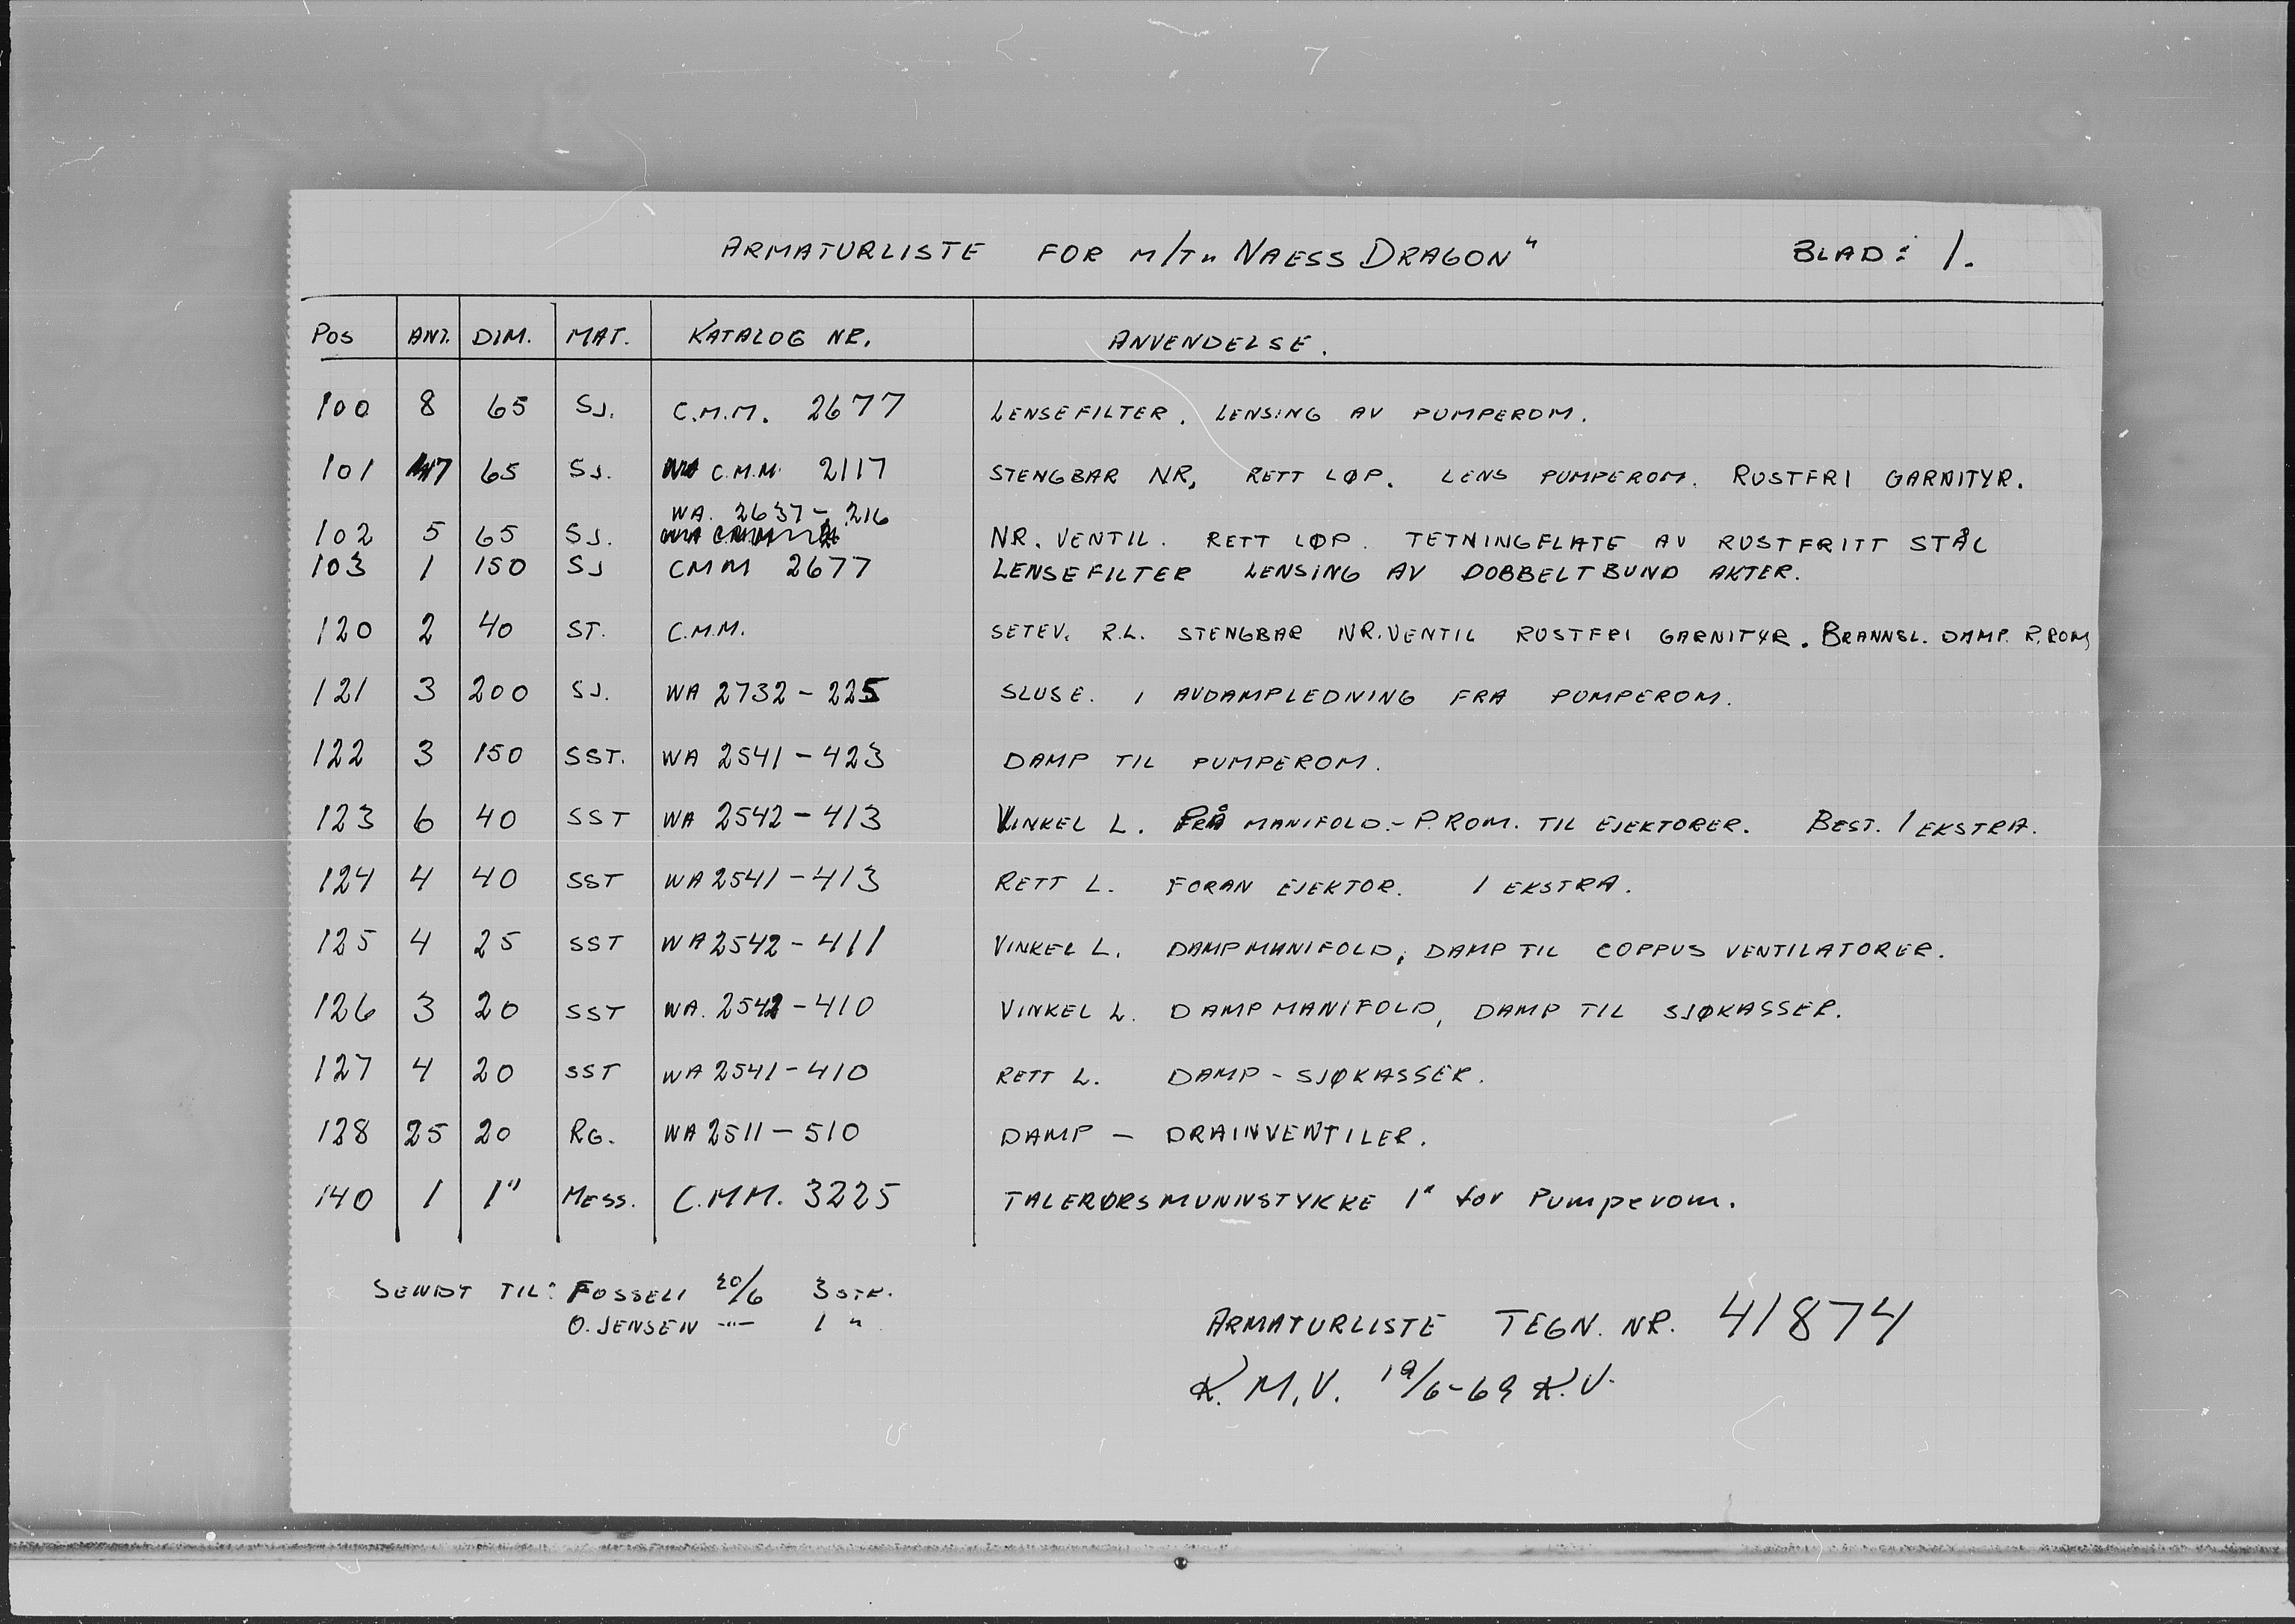 ARMATURLISTE FOR M/T „NAESS DRAGON" BLAD: 1.
POS ANT. DIM. MAT. KATALOG NR. ANVENDELSE.
100 8 65 SJ. C.M.M. 2677 LENSEFILTER. LENSING AV PUMPEROM.
101 7 65 SJ. C.M.M. 2117 STENGBAR NR, RETT LØP. LENS PUMPEROM. RUSTFRI GARNITYR.
WA. 2637-216
102 5 65 SJ. NR. VENTIL. RETT LØP. TETNINGFLATE AV RUSTFRITT STÅL
103 1 150 SJ CMM 2677 LENSEFILTER LENSING AV DOBBELTBUND AKTER.
120 2 40 ST. C.M.M. SETEV. R.L. STENGBAR NR.VENTIL RUSTFRI GARNITYR. BRANNSL. DAMP. P.ROM
121 3 200 SJ. WA 2732-225 SLUSE. I AVDAMPLEDNING FRA PUMPEROM.
122 3 150 SST. WA 2541-423 DAMP TIL PUMPEROM.
123 6 40 SST WA 2542-413 VINKEL L. PÅ MANIFOLD.-P.ROM. TIL EJEKTORER. BEST. 1 EKSTRA.
124 4 40 SST WA 2541-413 RETT L. FORAN EJEKTOR. 1 EKSTRA.
125 4 25 SST WA 2542-411 VINKEL L. DAMPMANIFOLD, DAMP TIL COPPUS VENTILATORER.
126 3 20 SST WA. 2542-410 VINKEL L. DAMPMANIFOLD, DAMP TIL SJØKASSER.
127 4 20 SST WA 2541-410 RETT L. DAMP-SJØKASSER.
128 25 20 RG. WA 2511-510 DAMP - DRAINVENTILER.
140 1 1" MESS. C.M.M. 3225 TALERØRSMUNNSTYKKE 1" for Pumperom.
SENDT TIL: FOSSELI 20/6 3 STK.
O. JENSEN -"- 1 "
ARMATURLISTE TEGN. NR. 41874
K.M.V. 19/6-69 K.V.